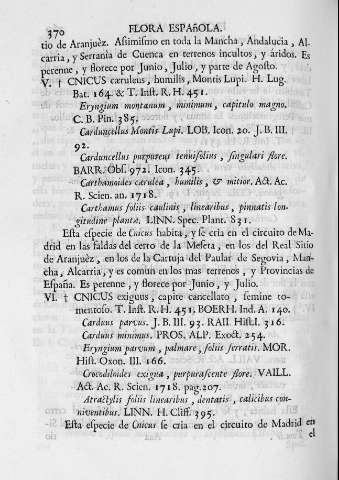 370 FLORA ESPAñOLA.
tio de Aranjuèz. Assimismo en toda la Mancha, Andalucia, Al-
carria, y Serranía de Cuenca en terrenos incultos, y áridos. Es
perenne, y florece por Junio, Julio, y parte de Agosto.
V. † CNICUS cæruleus, humilis, Montis Lupi. H. Lug.
Bat. 164. & T. Inst. R. H. 451.
Eryngium montanum, minimum, capitulo magno.
C. B. Pin. 385.
Carduncellus Montis Lupi. LOB. Icon. 20. J. B. III.
92.
Carduncellus purpureus tenuifolius, singulari flore.
BARR. Obs. 972. Icon. 345.
Carthamoides cærulea, humilis, & mitior. Act. Ac.
R. Scien. an. 1718.
Carthamus foliis caulinis, linearibus, pinnatis lon-
gitudine plantæ. LINN. Spec. Plant. 831.
Esta especie de Cnicus habita, y se cria en el circuito de Ma-
drid en las faldas del cerro de la Mesera, en los del Real Sitio
de Aranjuèz, en los de la Cartuja del Paular de Segovia, Man-
cha, Alcarria, y es comun en los mas terrenos, y Provincias de
España. Es perenne, y florece por Junio, y Julio.
VI. † CNICUS exiguus, capite cancellato, semine to-
mentoso. T. Inst. R. H. 451. BOERH. Ind. A. 140.
Carduus parvus. J. B. III. 93. RAII Hist.I. 316.
Carduus minimus. PROS. ALP. Exoct. 254.
Eryngium parvum, palmare, foliis serratis. MOR.
Hist. Oxon. III. 166.
Crocodiloides exigua, purpurascente flore. VAILL.
Act. Ac. R. Scien. 1718. pag.207.
Atractylis foliis linearibus, dentatis, calicibus con-
niventibus. LINN. H. Cliff. 395.
Esta especie de Cnicus se cria en el circuito de Madrid en
el